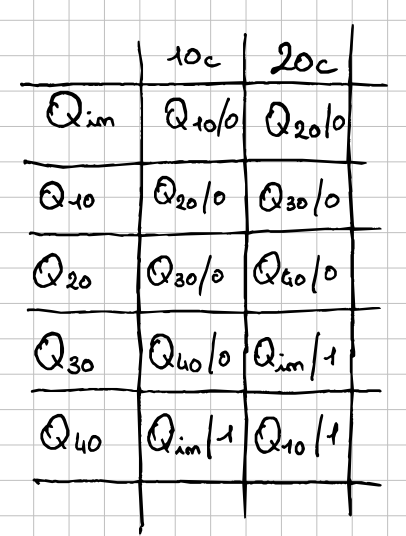 10c 20c
Qin Q10/0 Q20/0
Q10 Q20/0 Q30/0
Q20 Q30/0 Q40/0
Q30 Q40/0 Qin/1
Q40 Qin/1 Q10/1